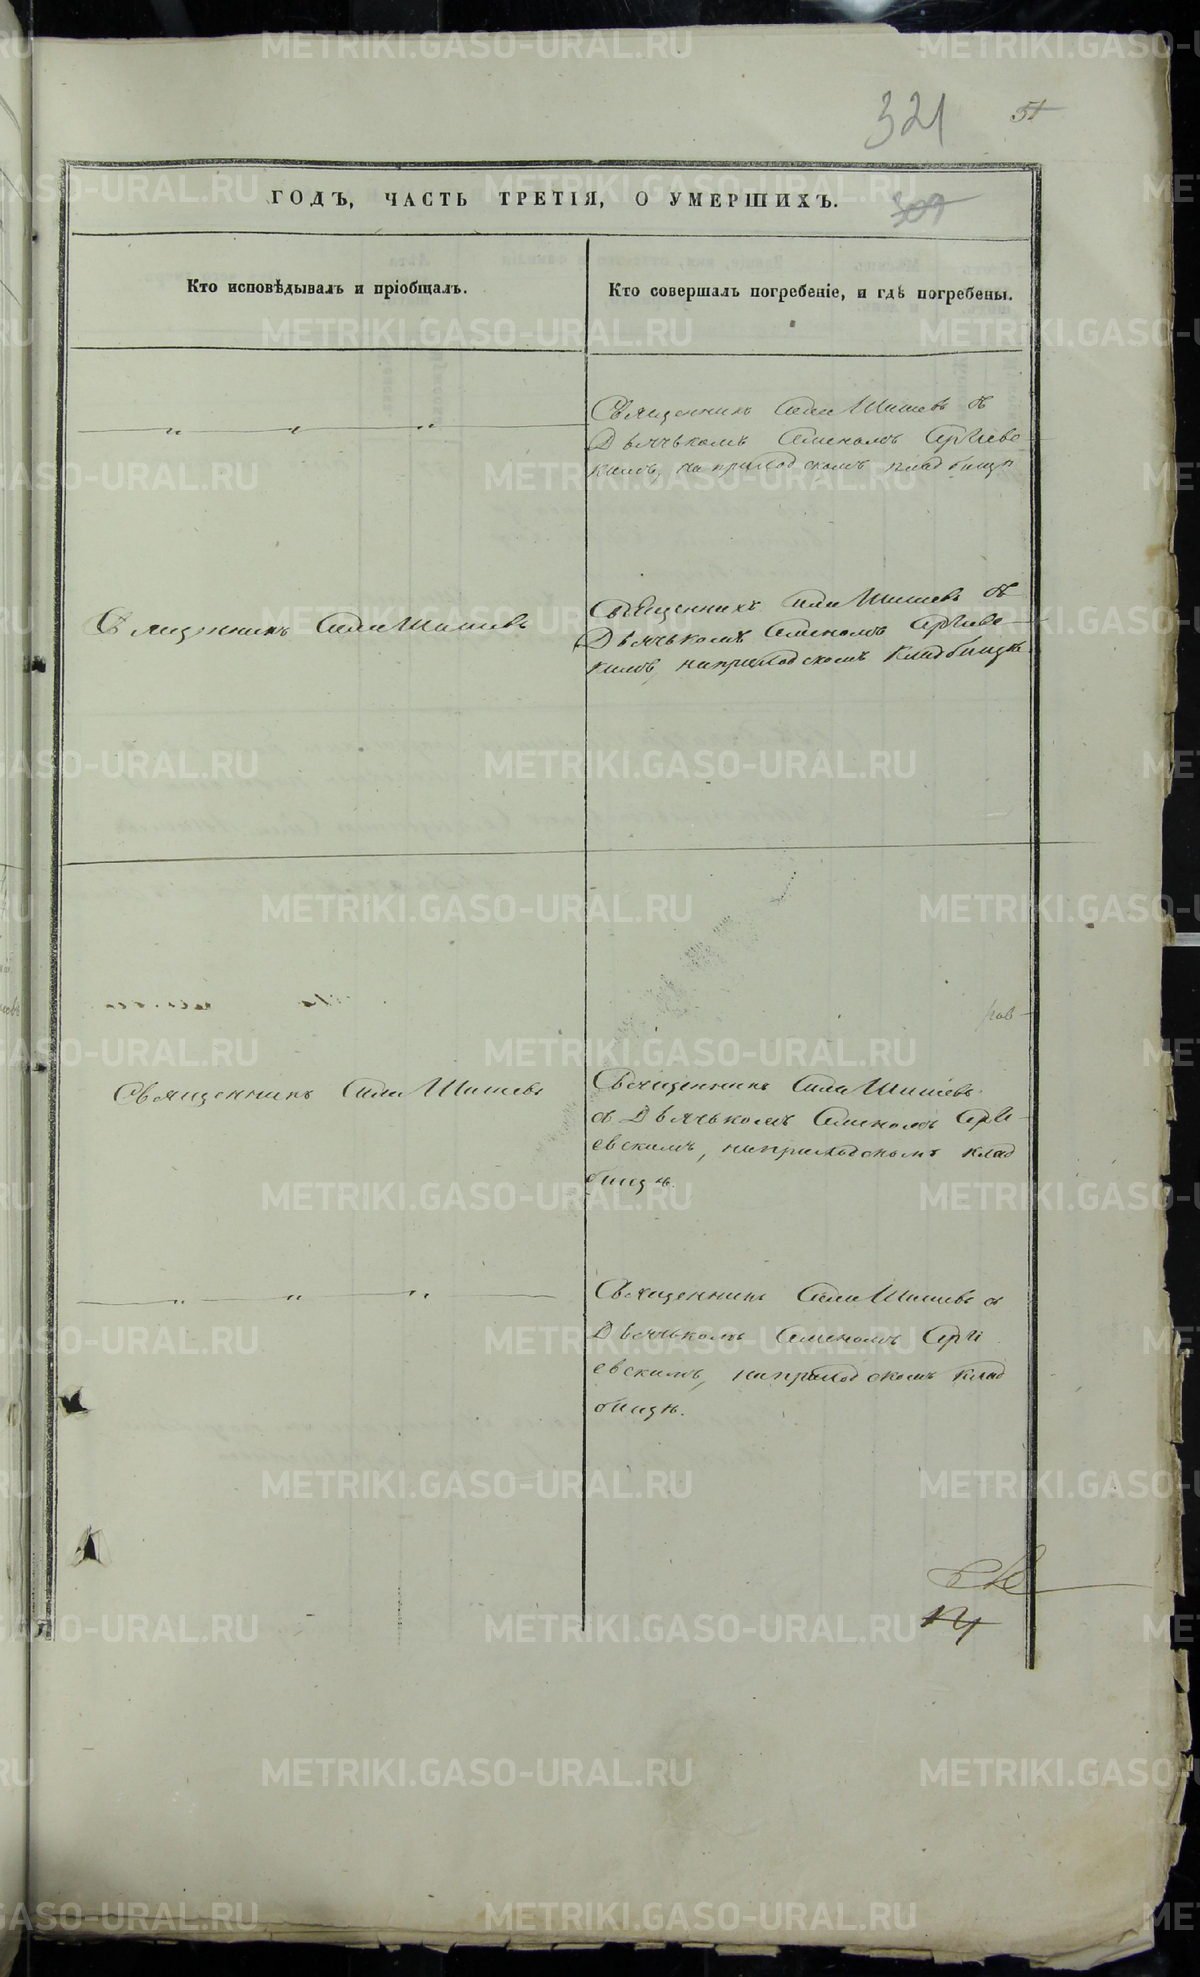 321 51
ГОДЪ, ЧАСТЬ ТРЕТІЯ, О УМЕРШИХЪ.
309
Кто исповѣдывалъ и пріобщалъ.
Кто совершалъ погребеніе, и гдѣ погребены.
Священникъ Сила Шишевъ съ
Дьячькомъ Семеномъ Аргіевс
кимъ, на приходскомъ кладбищѣ
Священникъ Сила Шишевъ
Священникъ Сила Шишевъ съ
Дьячькомъ Семеномъ Аргіевс
кимъ, на приходскомъ кладбищѣ
Священникъ Сила Шишевъ
Священникъ Сила Шишевъ
съ Дьячькомъ Семеномъ Аргі
евскимъ, на приходскомъ клад
бищѣ.
Священникъ Сила Шишевъ съ
Дьячькомъ Семеномъ Аргі
евскимъ, на приходскомъ клад
бищѣ.
METRIKI.GASO-URAL.RU